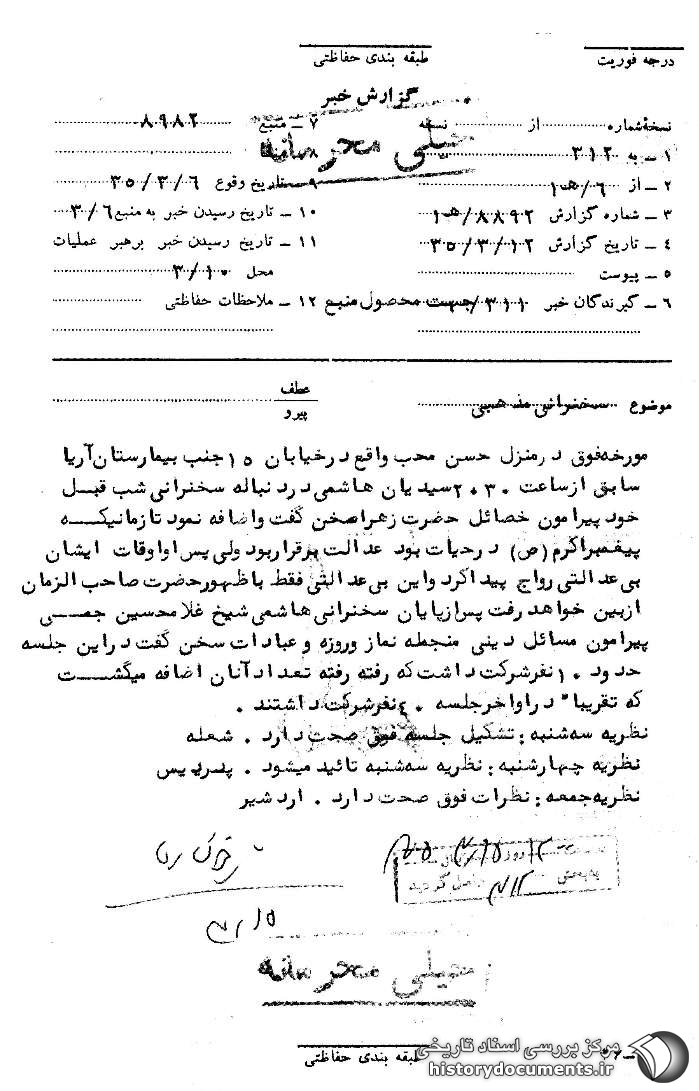 درجه فوریت
طبقه بندی حفاظتی
گزارش خبر
خیلی محرمانه
نسخه شماره از نسخه
۱ ـ به ۳۱۲
۲ ـ از ۶/ه۱۰
۳ ـ شماره گزارش ۸۸۹۲/ه۱۰
۴ ـ تاریخ گزارش ۳۵/۳/۱۲
۵ ـ پیوست
۶ ـ گیرندگان خبر جهت محصول منبع
۷ ـ منبع ۸۹۸۲
۸
۹ ـ تاریخ وقوع ۳۵/۳/۶
۱۰ ـ تاریخ رسیدن خبر به منبع ۳/۶
۱۱ ـ تاریخ رسیدن خبر برهبر عملیات
محل ۳/۱۰
۱۲ ـ ملاحظات حفاظتی
موضوع سخنرانی مذهبی
عطف
پیرو
مورخه فوق در منزل حسن محب واقع در خیابان ۱۵ جنب بیمارستان آریا
سابق از ساعت ۲۰۳۰ سیدیان هاشمی در دنباله سخنرانی شب قبل
خود پیرامون خصائل حضرت زهرا سخن گفت و اضافه نمود تا زمانیکه
پیغمبر اکرم (ص) در حیات بود عدالت برقرار بود ولی پس او اوقات ایشان
بی عدالتی رواج پیدا کرد و این بی عدالتی فقط با ظهور حضرت صاحب الزمان
از بین خواهد رفت پس از پایان سخنرانی هاشمی شیخ غلامحسین جمی
پیرامون مسائل دینی منجمله نماز و روزه و عبادات سخن گفت در این جلسه
حدود ۱۰ نفر شرکت داشت که رفته رفته تعداد آنان اضافه میگشت
که تقریبا" در اواخر جلسه ۴۰ نفر شرکت داشتند .
نظریه سه شنبه : تشکیل جلسه فوق صحت دارد . شعله
نظریه چهارشنبه : نظریه سه شنبه تائید میشود . پردیس
نظریه جمعه : نظرات فوق صحت دارد . اردشیر
خیلی محرمانه
طبقه بندی حفاظتی
مرکز بررسی اسناد تاریخی
historydocuments.ir